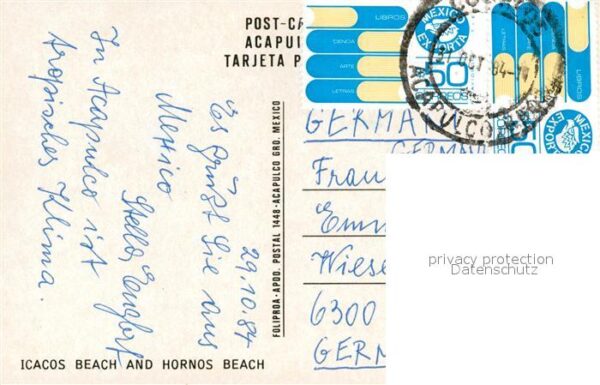 POST-CA
ACAPUL
TARJETA P
LIBROS
CIENCIA
ARTE
LETRAS
MEXICO
EXPORTA
50
CORREOS
LIBROS
OCT 84
ACAPULCO
29.10.84
Es grüßt Sie aus
Mexico
Stella
In Acapulco ist
tropisches Klima.
FOLIPROA-APDO. POSTAL 1448-ACAPULCO GRO. MEXICO
GERMAN
GERMAN
Frau
Emm
Wiese
6300
GERM
ICACOS BEACH AND HORNOS BEACH
privacy protection
Datenschutz